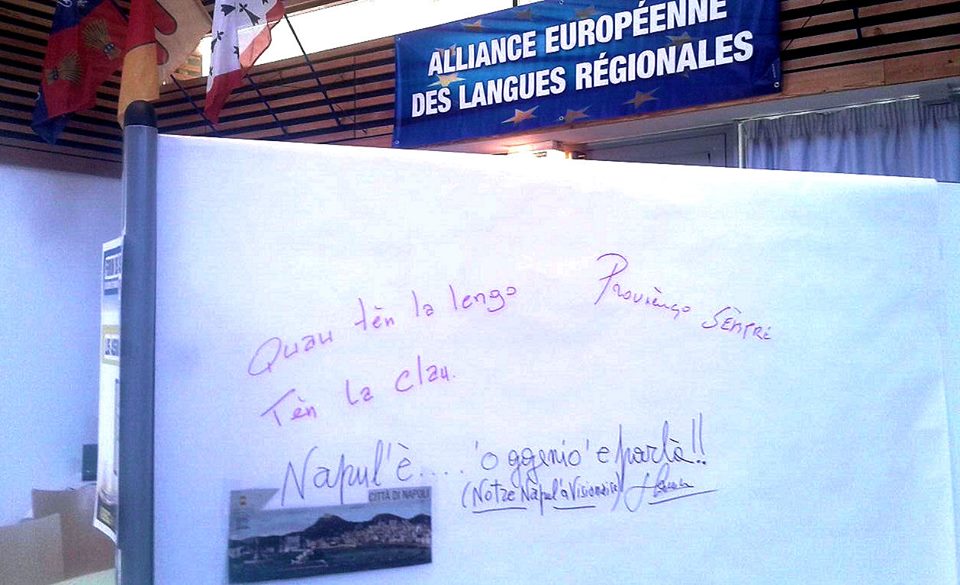 ALLIANCE EUROPÉENNE
DES LANGUES RÉGIONALES
Quau tèn la lengo
Tèn la clau.
Prouvènço SÈMPRE
Napul'è.... 'o ggenio 'e parlà!!
(Notre Napul'a Visionaire)
CITTÀ DI NAPOLI